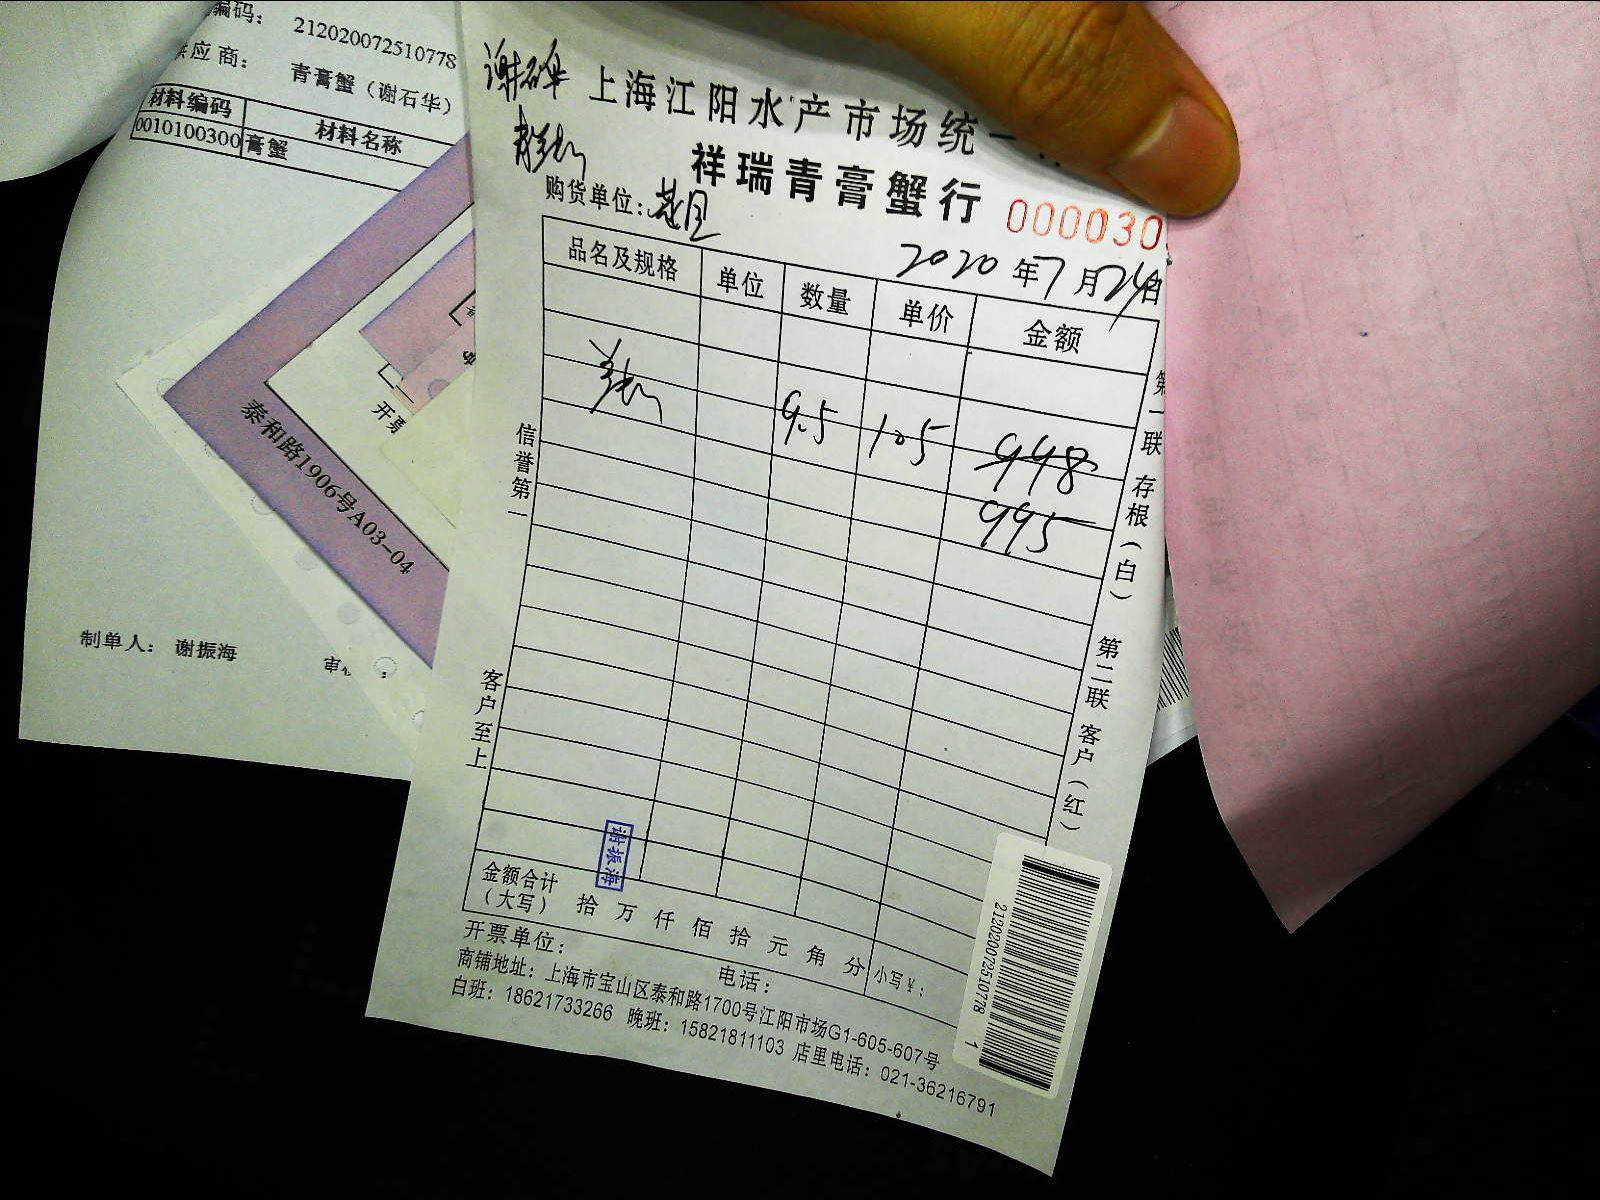 编码： 212020072510778
应商： 青膏蟹（谢石华）
材料编码 材料名称
0010100300 膏蟹
泰和路1906号A03-04
开票
制单人： 谢振海
谢石华
上海江阳水产市场统一
祥瑞青膏蟹行
000030
购货单位：
2020年7月24日
品名及规格 单位 数量 单价 金额
9.5 105 998
995
信誉第一
客户至上
第一联 存根（白） 第二联 客户（红）
谢振海
金额合计
（大写） 拾 万 仟 佰 拾 元 角 分 小写¥：
开票单位： 电话：
商铺地址：上海市宝山区泰和路1700号江阳市场G1-605-607号
白班：18621733266 晚班：15821811103 店里电话：021-36216791
212020072510778 1